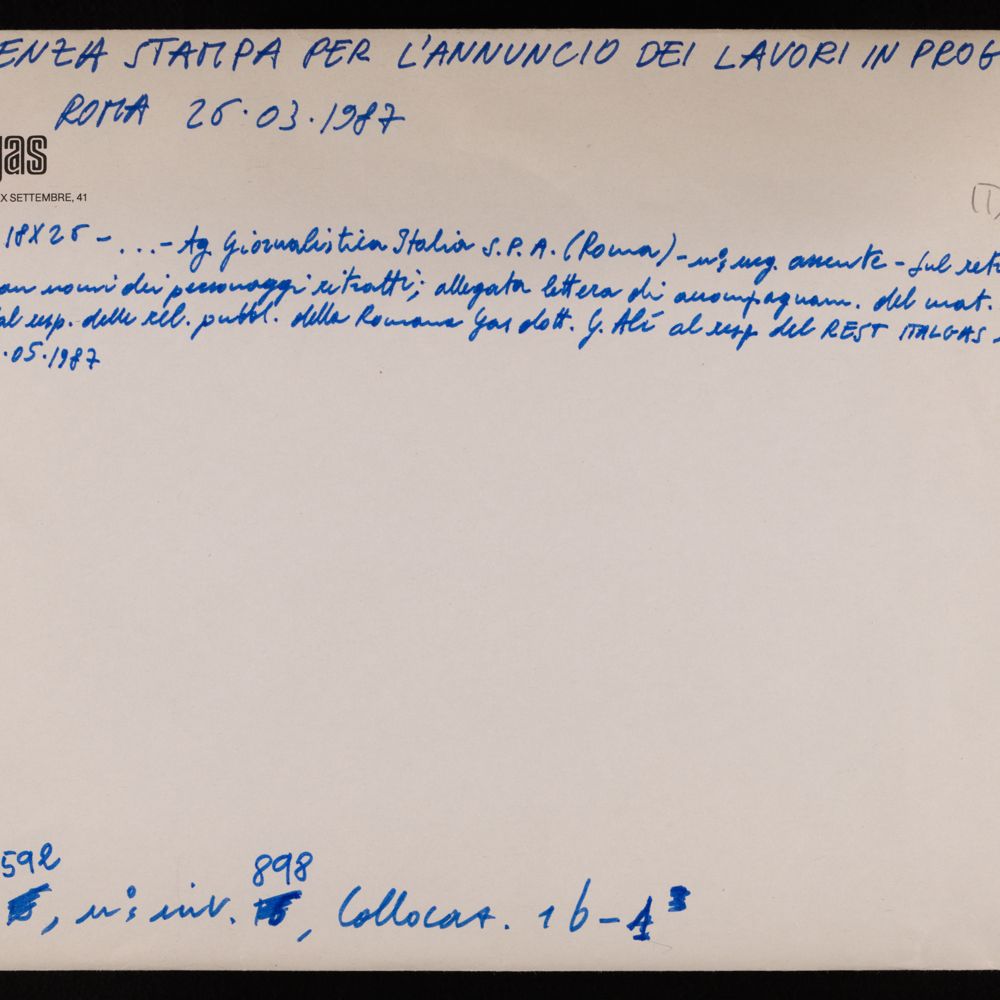 ENZA STAMPA PER L'ANNUNCIO DEI LAVORI IN PROG
ROMA 26.03.1987
gas
X SETTEMBRE, 41
18X25 - ... - Ag. Giornalistica Italia S.P.A. (Roma) - n° neg. assente - Sul retr
nomi dei personaggi ritratti; allegata lettera di accompagnam. del mat.
al resp. delle rel. pubbl. della Romana Gas dott. G. Alì al resp del REST ITALGAS
.05.1987
592
898
, n° inv. , Collocaz. 1b-